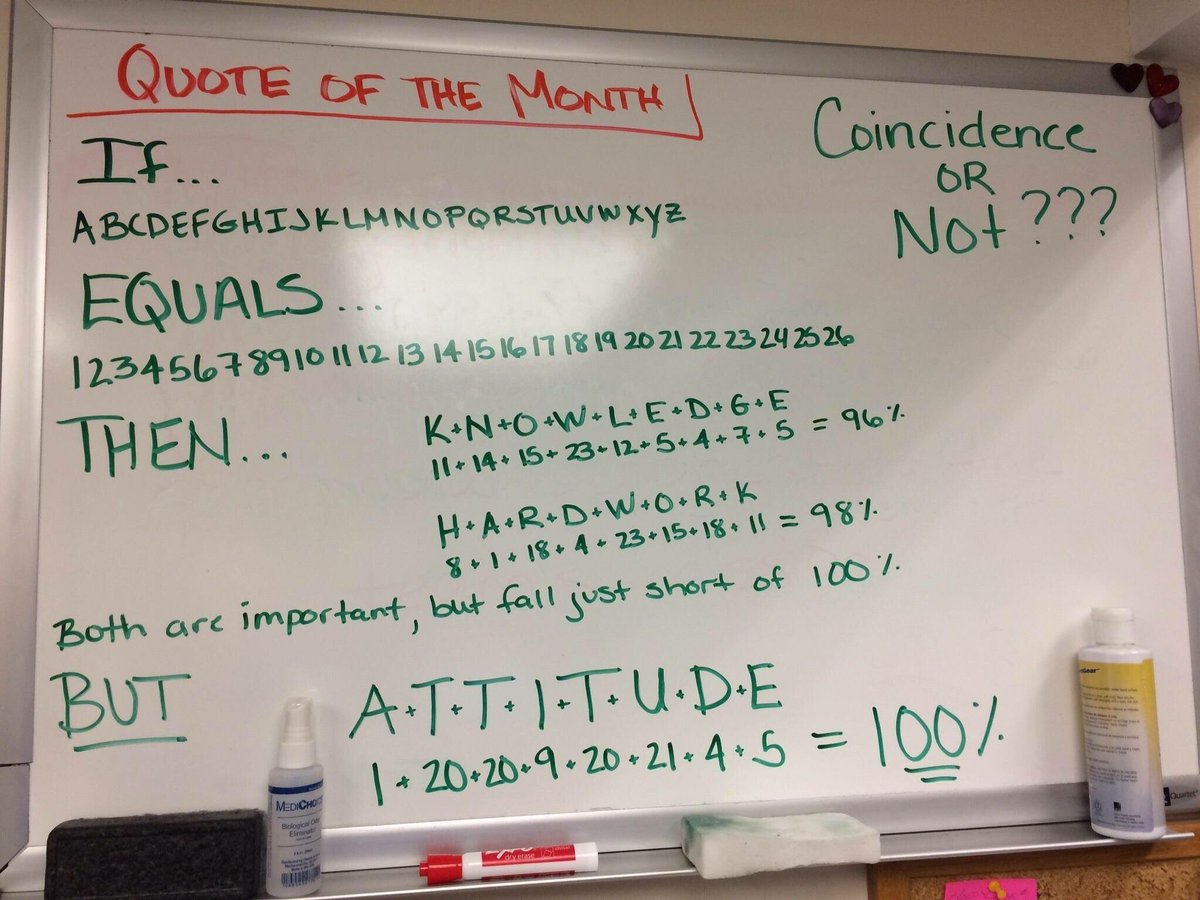 QUOTE OF THE MONTH
Coincidence
OR
Not ???
If...
ABCDEFGHIJKLMNOPQRSTUVWXYZ
EQUALS...
1 2 3 4 5 6 7 8 9 10 11 12 13 14 15 16 17 18 19 20 21 22 23 24 25 26
THEN...
K+N+O+W+L+E+D+G+E
11+14+15+23+12+5+4+7+5 = 96%
H+A+R+D+W+O+R+K
8+1+18+4+23+15+18+11 = 98%
Both are important, but fall just short of 100%
BUT
A+T+T+I+T+U+D+E
1+20+20+9+20+21+4+5 = 100%
Biological Odor
Eliminator
dry erase
Quartet